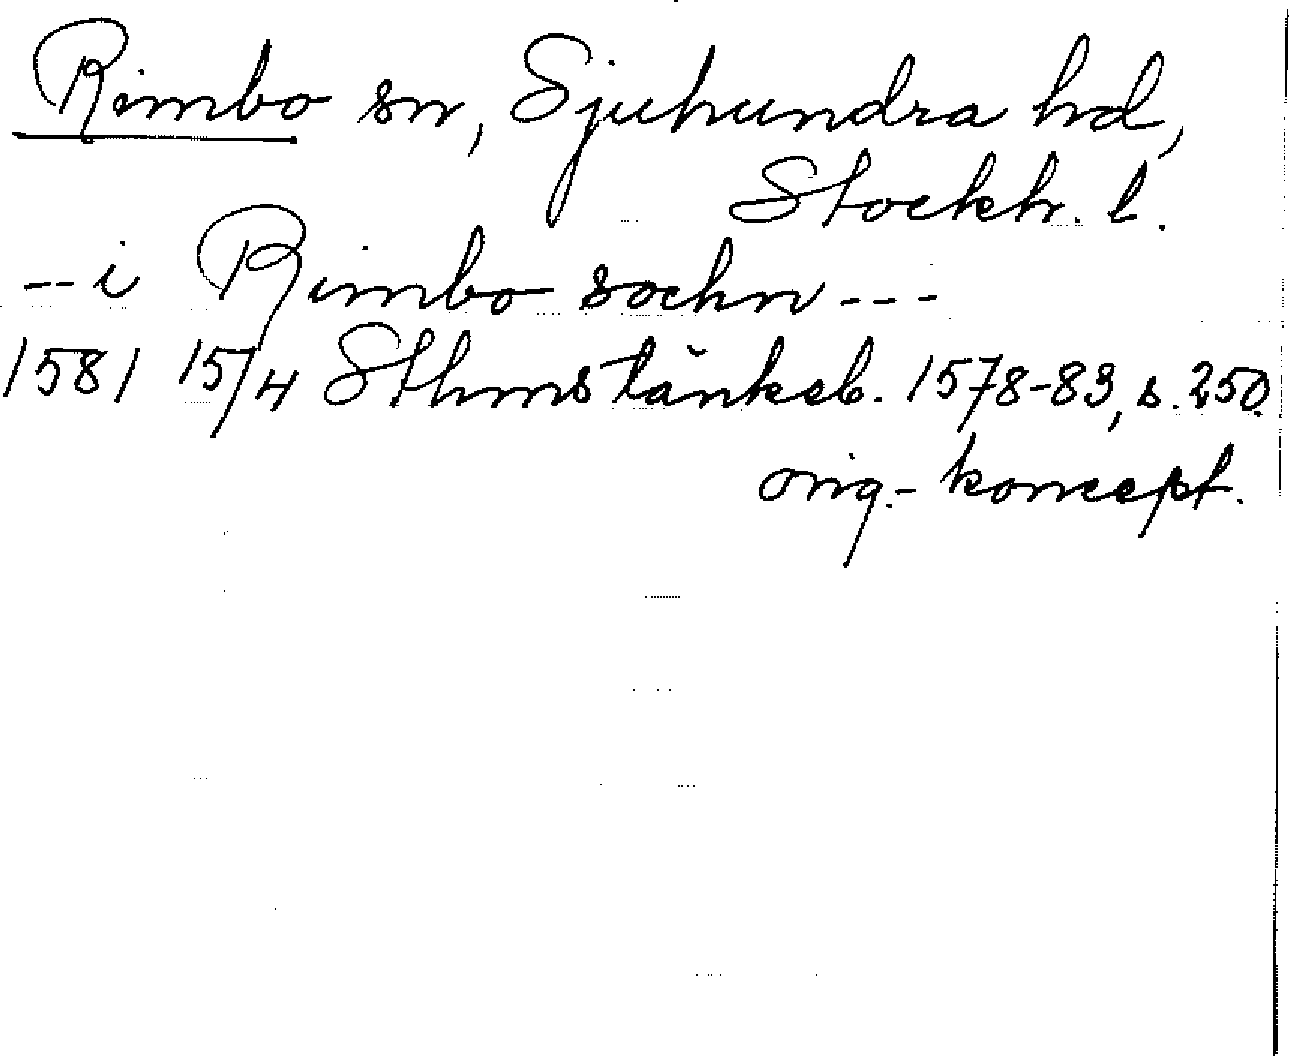 Rimbo sn, Sjuhundra hd,
Stockh. l.
-- i Rimbo sochn ---
1581 15/4 Sthms tänkeb. 1578-83, s. 250
orig.- koncept.